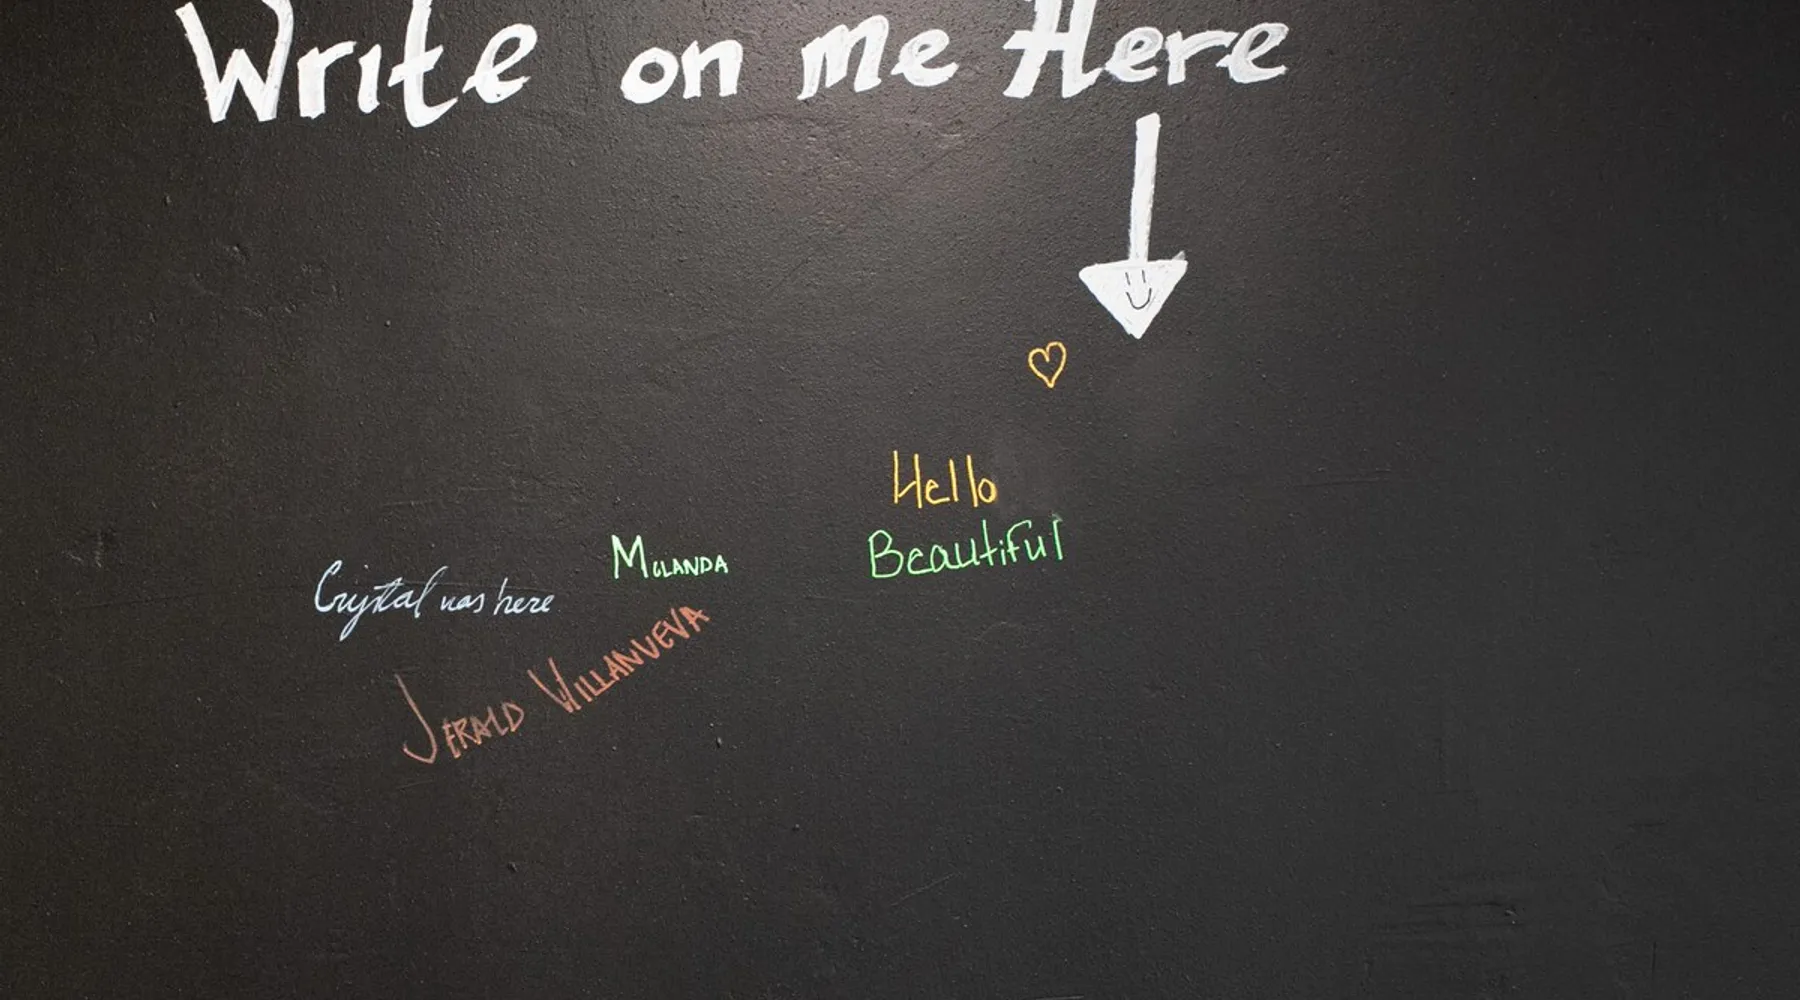 Write on me Here
Hello
Beautiful
Crystal was here
JERALD VILLANUEVA